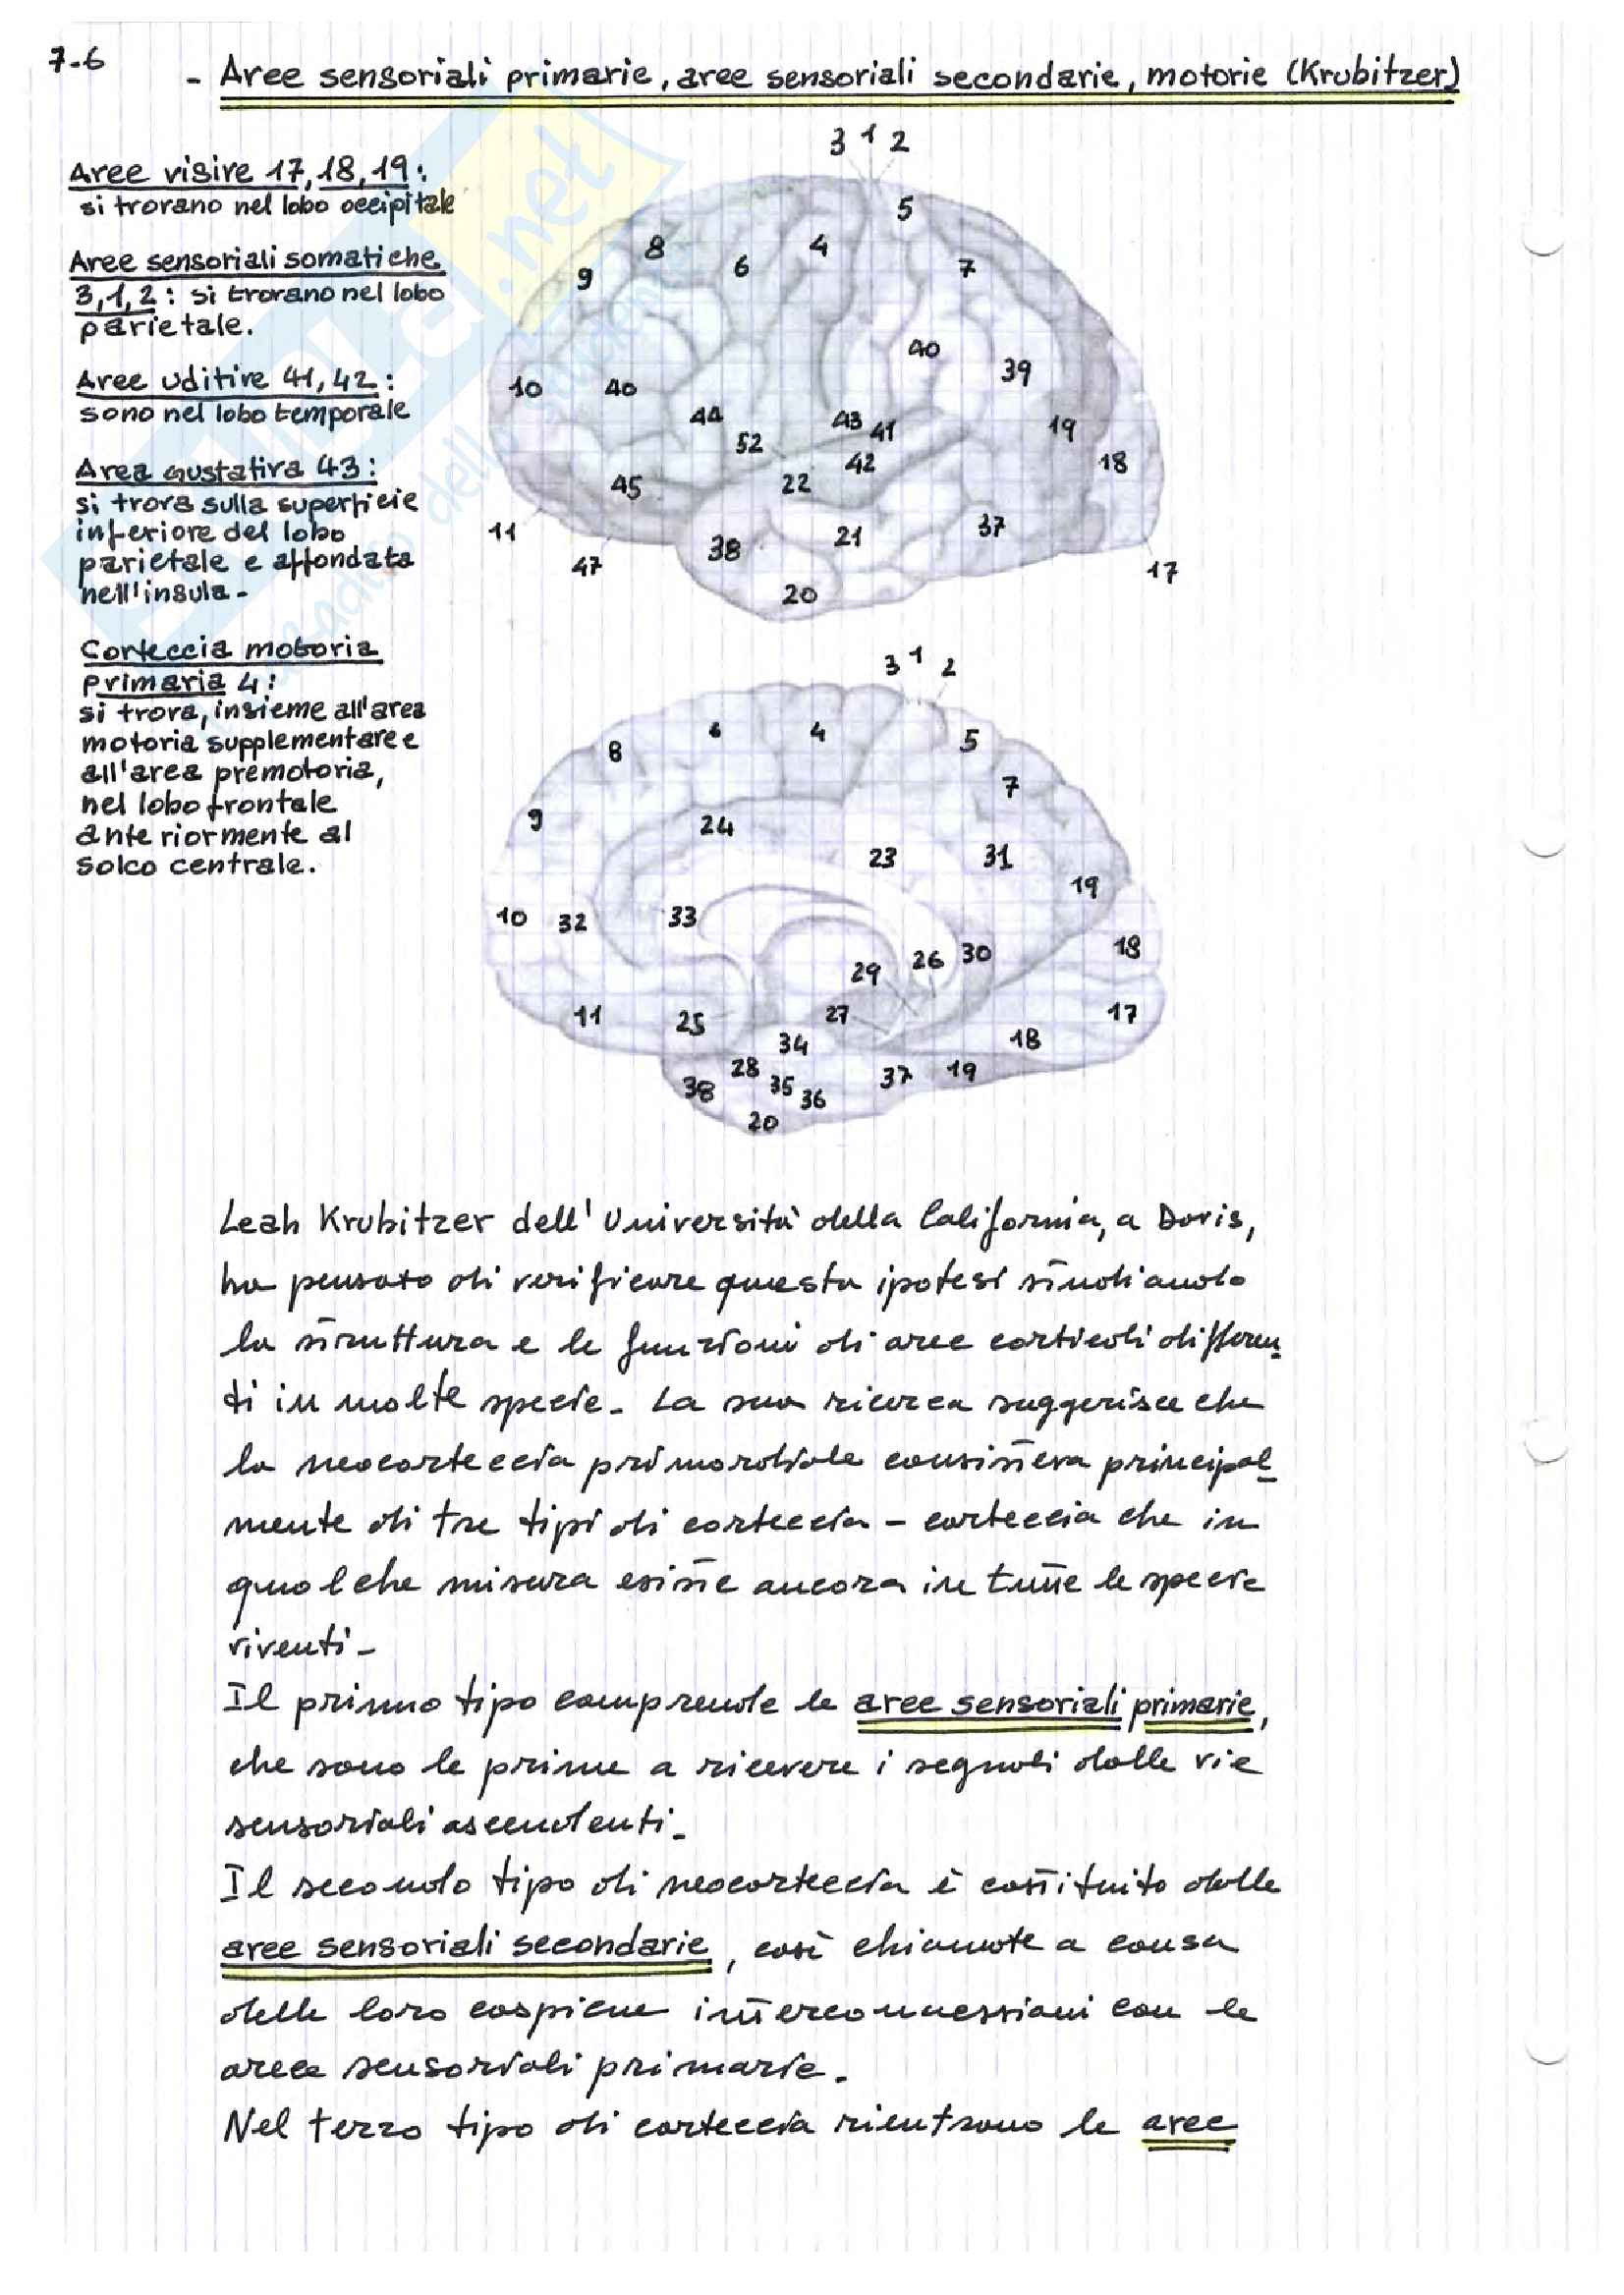 7.6
- Aree sensoriali primarie, aree sensoriali secondarie, motorie (Krubitzer)
Aree visive 17, 18, 19:
si trovano nel lobo occipitale
Aree sensoriali somatiche
3, 1, 2: si trovano nel lobo
parietale.
Aree uditive 41, 42:
sono nel lobo temporale
Area gustativa 43:
si trova sulla superficie
inferiore del lobo
parietale e affondata
nell'insula-
Corteccia motoria
primaria 4:
si trova, insieme all'area
motoria supplementare e
all'area premotoria,
nel lobo frontale
anteriormente al
solco centrale.
3 1 2
5
8 6 4
9 7
40 39
10 40
44 43 41 19
52 42 18
45 22
11 21 37
38
47 17
20
3 1 2
8 6 4 5
7
9 24
23 31
19
10 32 33
18
29 26 30
11 25 27 17
34 18
28 37 19
38 35 36
20
Leah Krubitzer dell'Università della California, a Davis,
ha pensato di verificare questa ipotesi studiando
la struttura e le funzioni di aree corticali differen-
ti in molte specie- La sua ricerca suggerisce che
la neocorteccia primordiale consisteva principal-
mente di tre tipi di corteccia - corteccia che in
qualche misura esiste ancora in tutte le specie
viventi-
Il primo tipo comprende le aree sensoriali primarie,
che sono le prime a ricevere i segnali dalle vie
sensoriali ascendenti-
Il secondo tipo di neocorteccia è costituito dalle
aree sensoriali secondarie, così chiamate a causa
delle loro cospicue interconnessioni con le
aree sensoriali primarie.
Nel terzo tipo di corteccia rientrano le aree